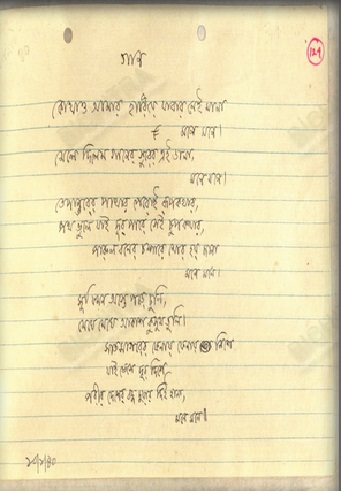 গান
১২৭
কোথাও আমার হারিয়ে যাবার নেই মানা
মনে মনে।
মেলে দিলেম গানের সুরের এই ডানা,
মনে মনে।
তেপান্তরের পাথার পেরোই রূপকথার,
পথ ভুলে যাই দূর পারে সেই চুপকথার,
পারুলবনের চম্পারে মোর হয় জানা
মনে মনে।
সূর্য যখন অস্তে পড়ে ঢুলি,
মেঘে মেঘে আকাশ কুসুম তুলি।
সাত সাগরের ফেনায় ফেনায় মিশে
যাই ভেসে দূর দিশে,
পরীর দেশের বদ্ধ দুয়ার দিই হানা,
মনে মনে।